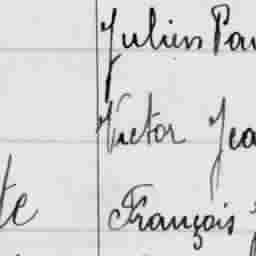 Julien Pau
Victor Jea
te François